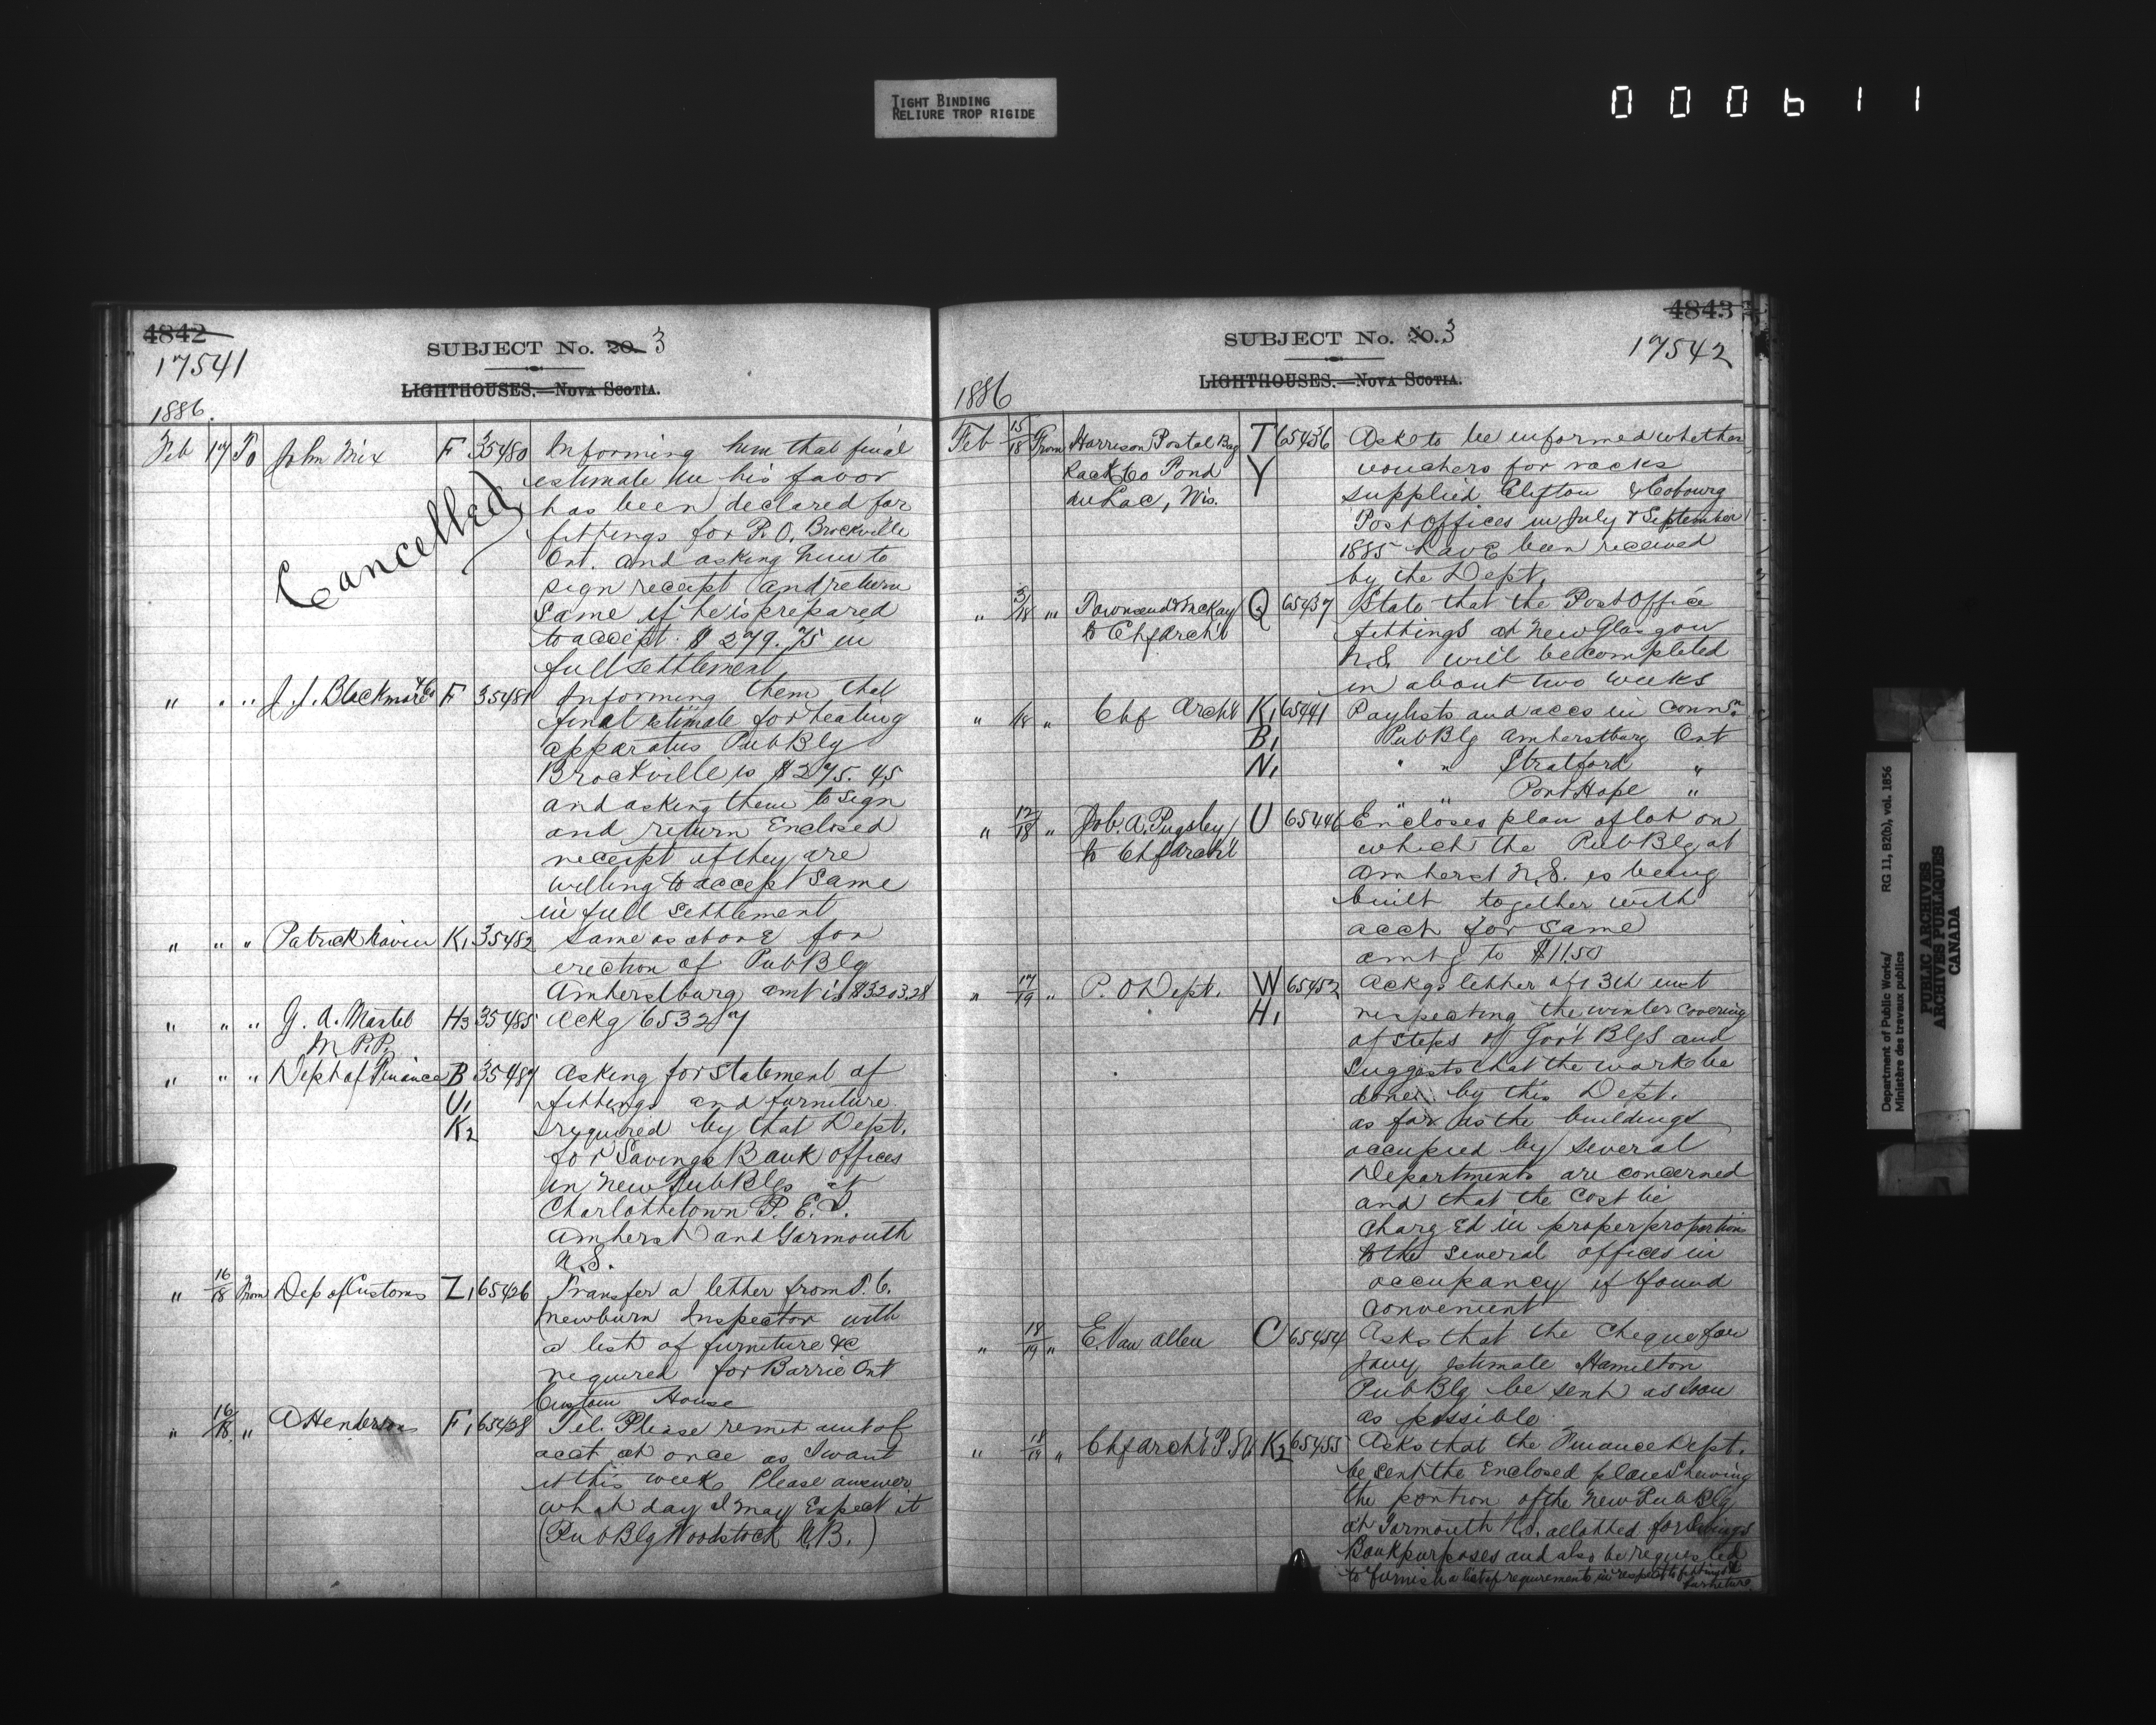 TIGHT BINDING
RELIURE TROP RIGIDE
000611
4842
17541
SUBJECT No. 20. 3
LIGHTHOUSES.—NOVA SCOTIA.
1886.
Feb 17 To John Mix F 35480 Informing him that final
estimate in his favor
has been declared for
fittings for P.O. Brockville
Ont. and asking him to
sign receipt and return
same if he is prepared
to accept $279.75 in
full settlement
Cancelled
" " " J. J. Blackmore & Co F 35481 Informing them that
final estimate for heating
apparatus Pub Blg
Brockville is $275.45
and asking them to sign
and return Enclosed
receipt if they are
willing to accept same
in full settlement
" " " Patrick Navin K1 35482 Same as above for
erection of Pub Blg
Amherstburg amt is $3203.28
" " " G. A. Martel H3 35485 Ackg 65327
M P.P.
" " " Dept of Finance B 35487 Asking for statement of
U1 fittings and furniture
K2 required by that Dept.
for Savings Bank offices
in New Pub Blgs at
Charlottetown P. E. I.
Amherst and Yarmouth
N.S.
" 16/18 From Dep of Customs Z1 65426 Transfer a letter from P. C.
Newburn Inspector with
a list of furniture &c
required for Barrie Ont
Custom House
" 16/18 " A Henderson F1 65428 Tel. Please remit amt of
acct at once as I want
it this week Please answer
what day I may Expect it
(Pub Blg Woodstock N.B.)
4843
17542
SUBJECT No. 20. 3
LIGHTHOUSES.—NOVA SCOTIA.
1886
Feb 15/18 From Harrison Postal Bag T 65436 Asks to be informed whether
Rack Co Fond Y vouchers for racks
du Lac, Wis. supplied Clifton & Cobourg
Post Offices in July & September
1885 have been received
by the Dept.
" /18 " Townsend & McKay Q 65437 State that the Post Office
to Chf Archt fittings at New Glasgow
N.S. will be completed
in about two weeks
" /18 " Chf Archt K1 65441 Paylists and accs in connn.
B1 Pub Blg Amherstburg Ont
N1 " " Stratford "
" " Port Hope "
" 12/18 " Job. A. Pugsley U 65446 Encloses plan of lot on
to Chf Archt which the Pub Blg at
Amherst N.S. is being
built together with
acct for same
amtg to $11.50
" 17/19 " P. O Dept. W 65452 Ackgs letter of 13th inst
H1 respecting the winter covering
of steps of Gov't Blgs and
suggests that the work be
done by this Dept.
as far as the buildings
occupied by several
Departments are concerned
and that the cost be
charged in proper proportions
to the several offices in
occupancy if found
convenient
" 18/19 " E. Van Allen C 65454 Asks that the cheque for
Jany estimate Hamilton
Pub Blg be sent as soon
as possible
" 18/19 " Chf Archt P. W. K2 65455 Asks that the Finance Dept.
be sent the Enclosed plan Shewing
the portion of the New Pub Blg
at Yarmouth N.S. allotted for Savings
Bank purposes and also be requested
to furnish a list of requirements in respect to fittings &
furniture
Department of Public Works/
Ministère des travaux publics
RG 11, B2(b), vol. 1856
PUBLIC ARCHIVES
ARCHIVES PUBLIQUES
CANADA